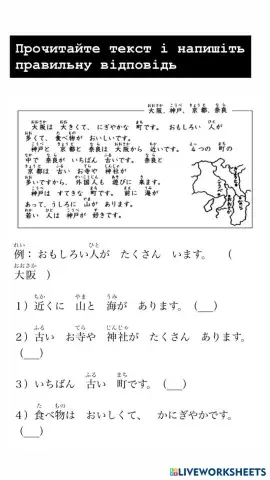 Прочитайте текст і напишіть
правильну відповідь
大阪、神戸、京都、奈良
大阪は 大きくて、にぎやかな 町です。 おもしろい 人が
多くて、食べ物が おいしいです。
神戸と 京都と 奈良は 大阪から 近いです。 4つの 町の
中で 奈良が いちばん 古いです。 奈良と
京都は 古い お寺や 神社が
多いですから、外国人も 遊びに 来ます。
神戸は すてきな 町です。 前に 海が
あって、うしろに 山が あります。
若い 人は 神戸が 好きです。
例：おもしろい人が たくさん います。 （
大阪 ）
1）近くに 山と 海が あります。（__）
2）古い お寺や 神社が たくさん あります。
（__）
3）いちばん 古い 町です。（__）
4）食べ物は おいしくて、 かにぎやかです。
（__）
LIVEWORKSHEETS